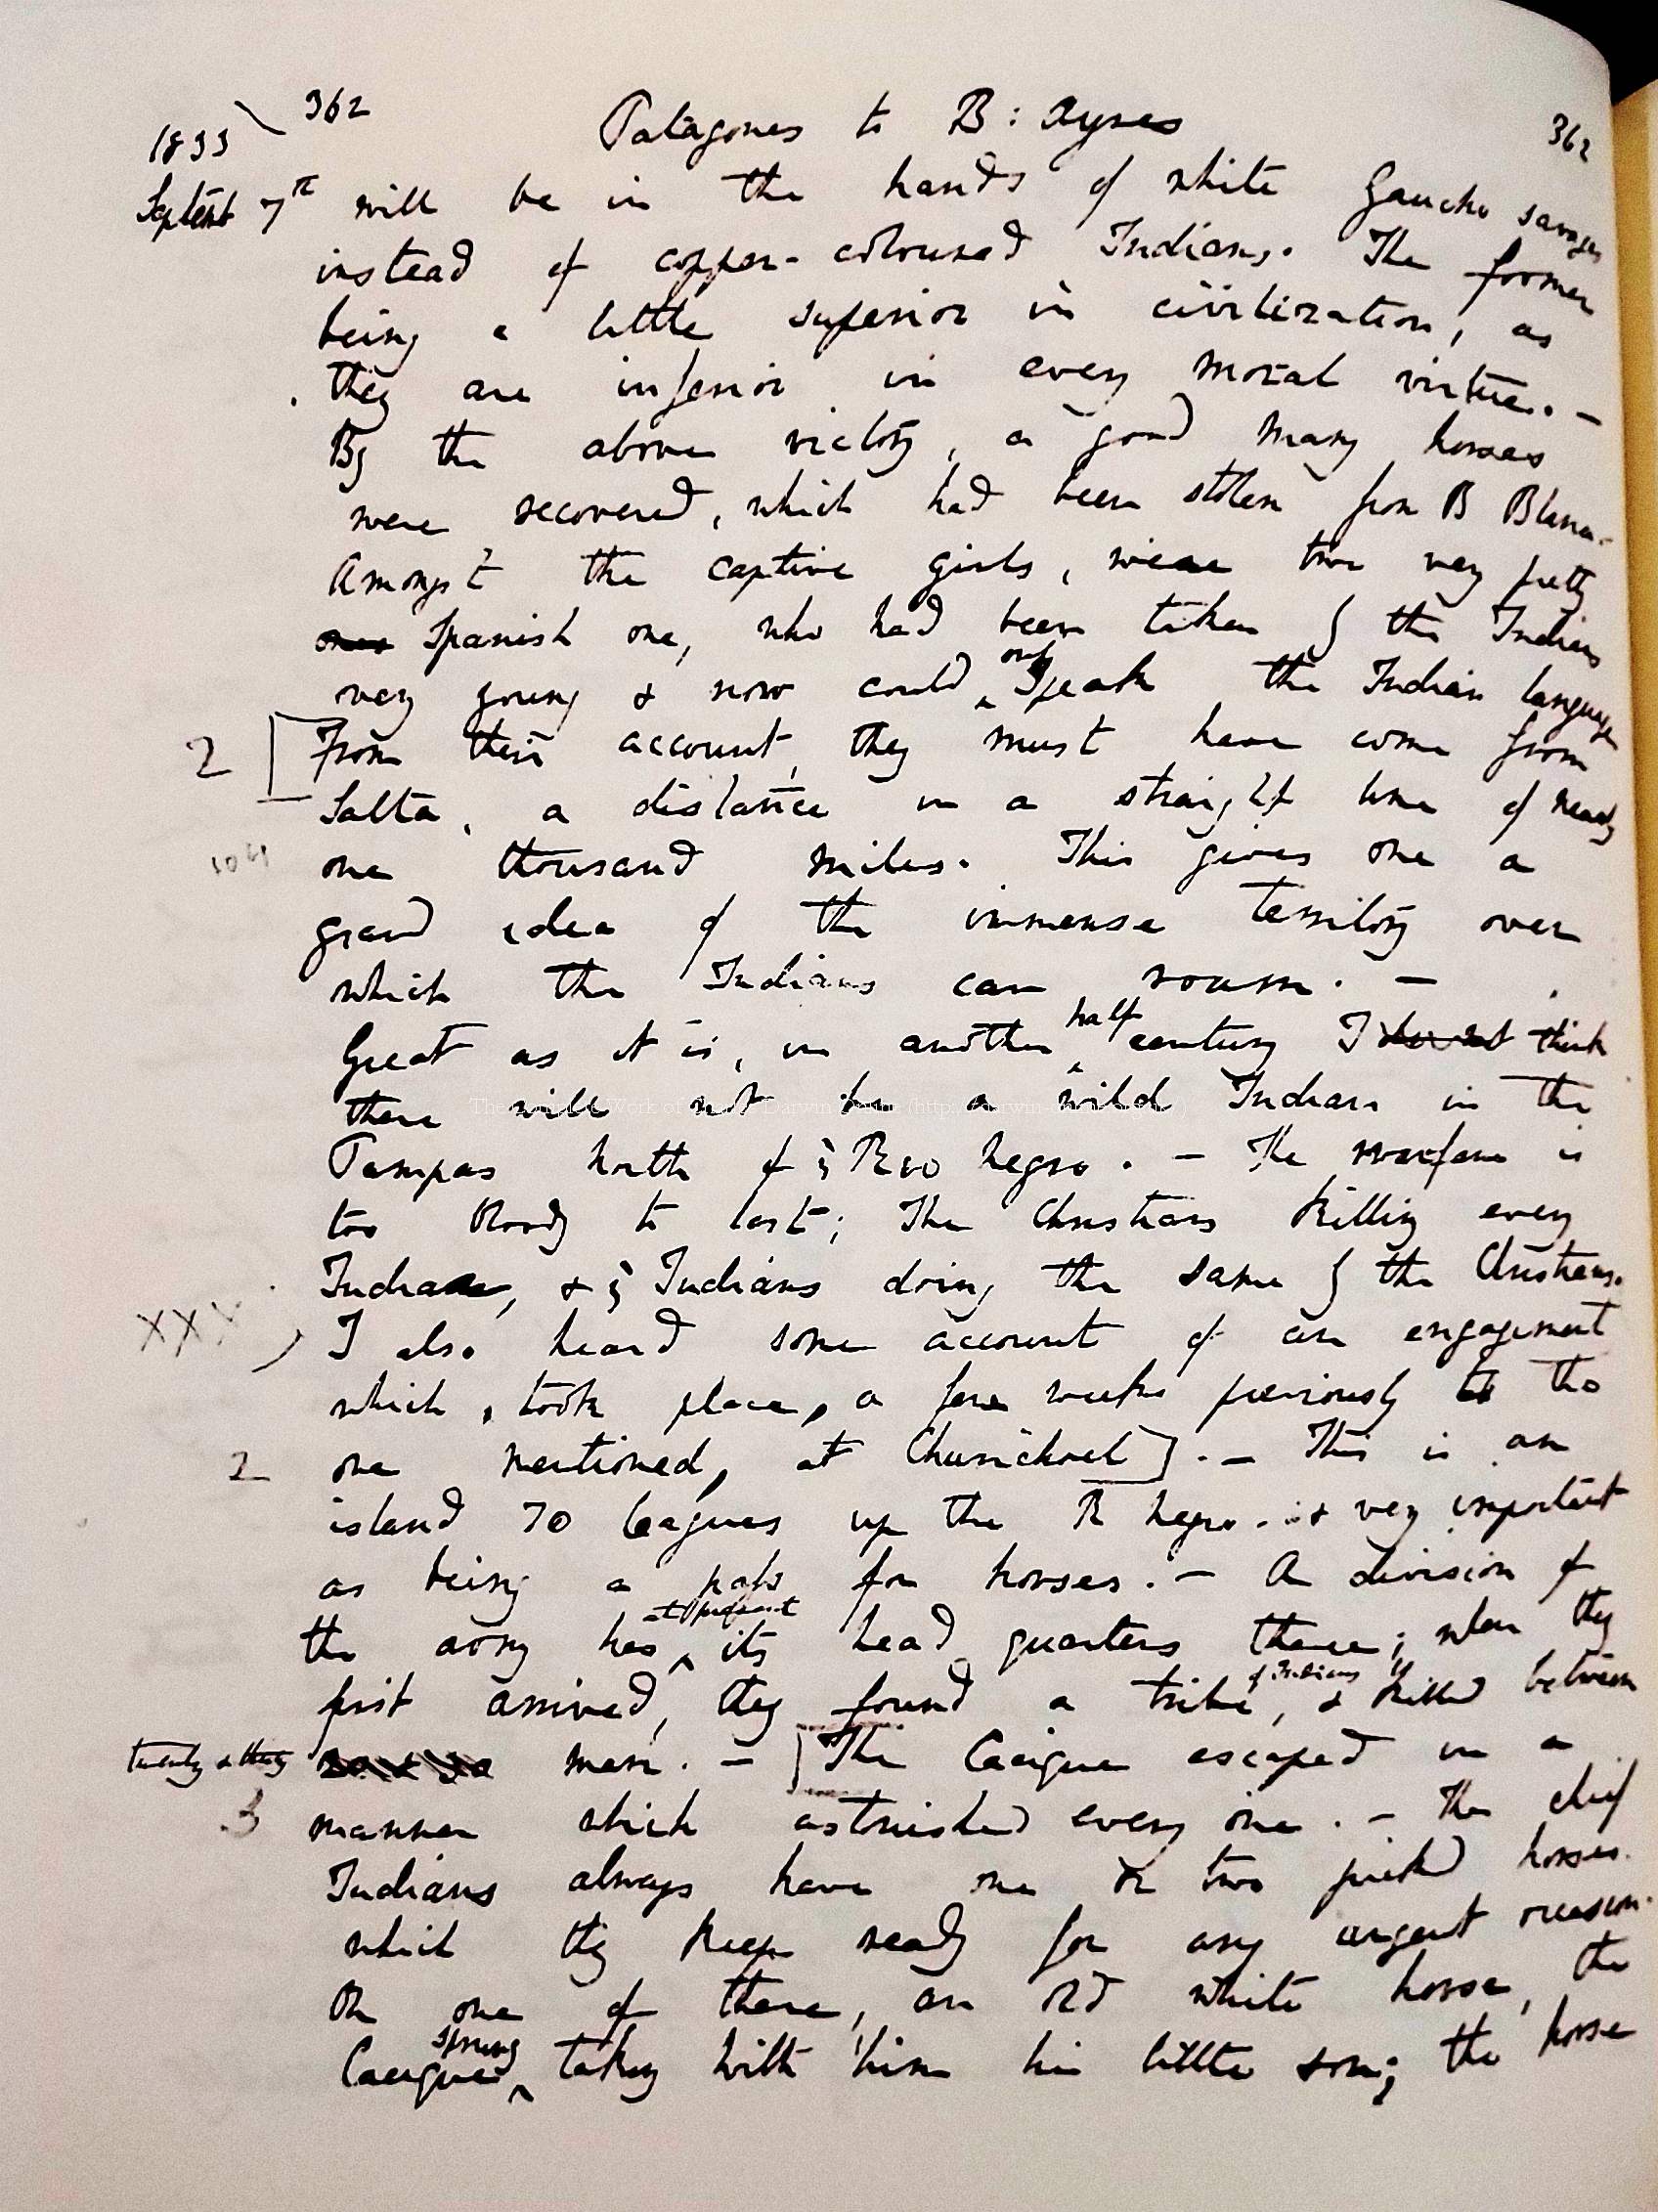 362 Patagones to B: Ayres 362
1833
Septemb 7th will be in the hands of white Gaucho savages
instead of copper-coloured Indians. The former
being a little superior in civilization, as
they are inferior in every moral virtue. —
By the above victory, a good many horses
were recovered, which had been stolen from B Blanca.
Amongst the captive girls, were two very pretty
ones Spanish one, who had been taken by the Indians
very young & now could only speak the Indian language
2 [From their account, they must have come from
Salta, a distance in a straight line of nearly
one thousand miles. This gives one a
grand idea of the immense territory over
which the Indians can roam. —
Great as it is, in another half century I think
there will not be a wild Indian in the
Pampas North of ye Rio Negro. — The warfare is
too bloody to last; The Christians killing every
Indian, & ye Indians doing the same by the Christians.
XXX I also heard some account of an engagement
which, took place, a few weeks previously to the
2 one mentioned, at Churichoel]. — This is an
island 70 leagues up the R Negro. & very important
as being a pass for horses. — A division of
the army has at present its head quarters there; when they
first arrived, they found a tribe of Indians, & killed between
twenty & thirty 20 & 30 men. — [The Cacique escaped in a
3 manner which astonished every one. — The chief
Indians always have one or two picked horses.
which they keep ready for any urgent occasion.
On one of these, an old white horse, the
Cacique sprung, taking with him his little son; the horse